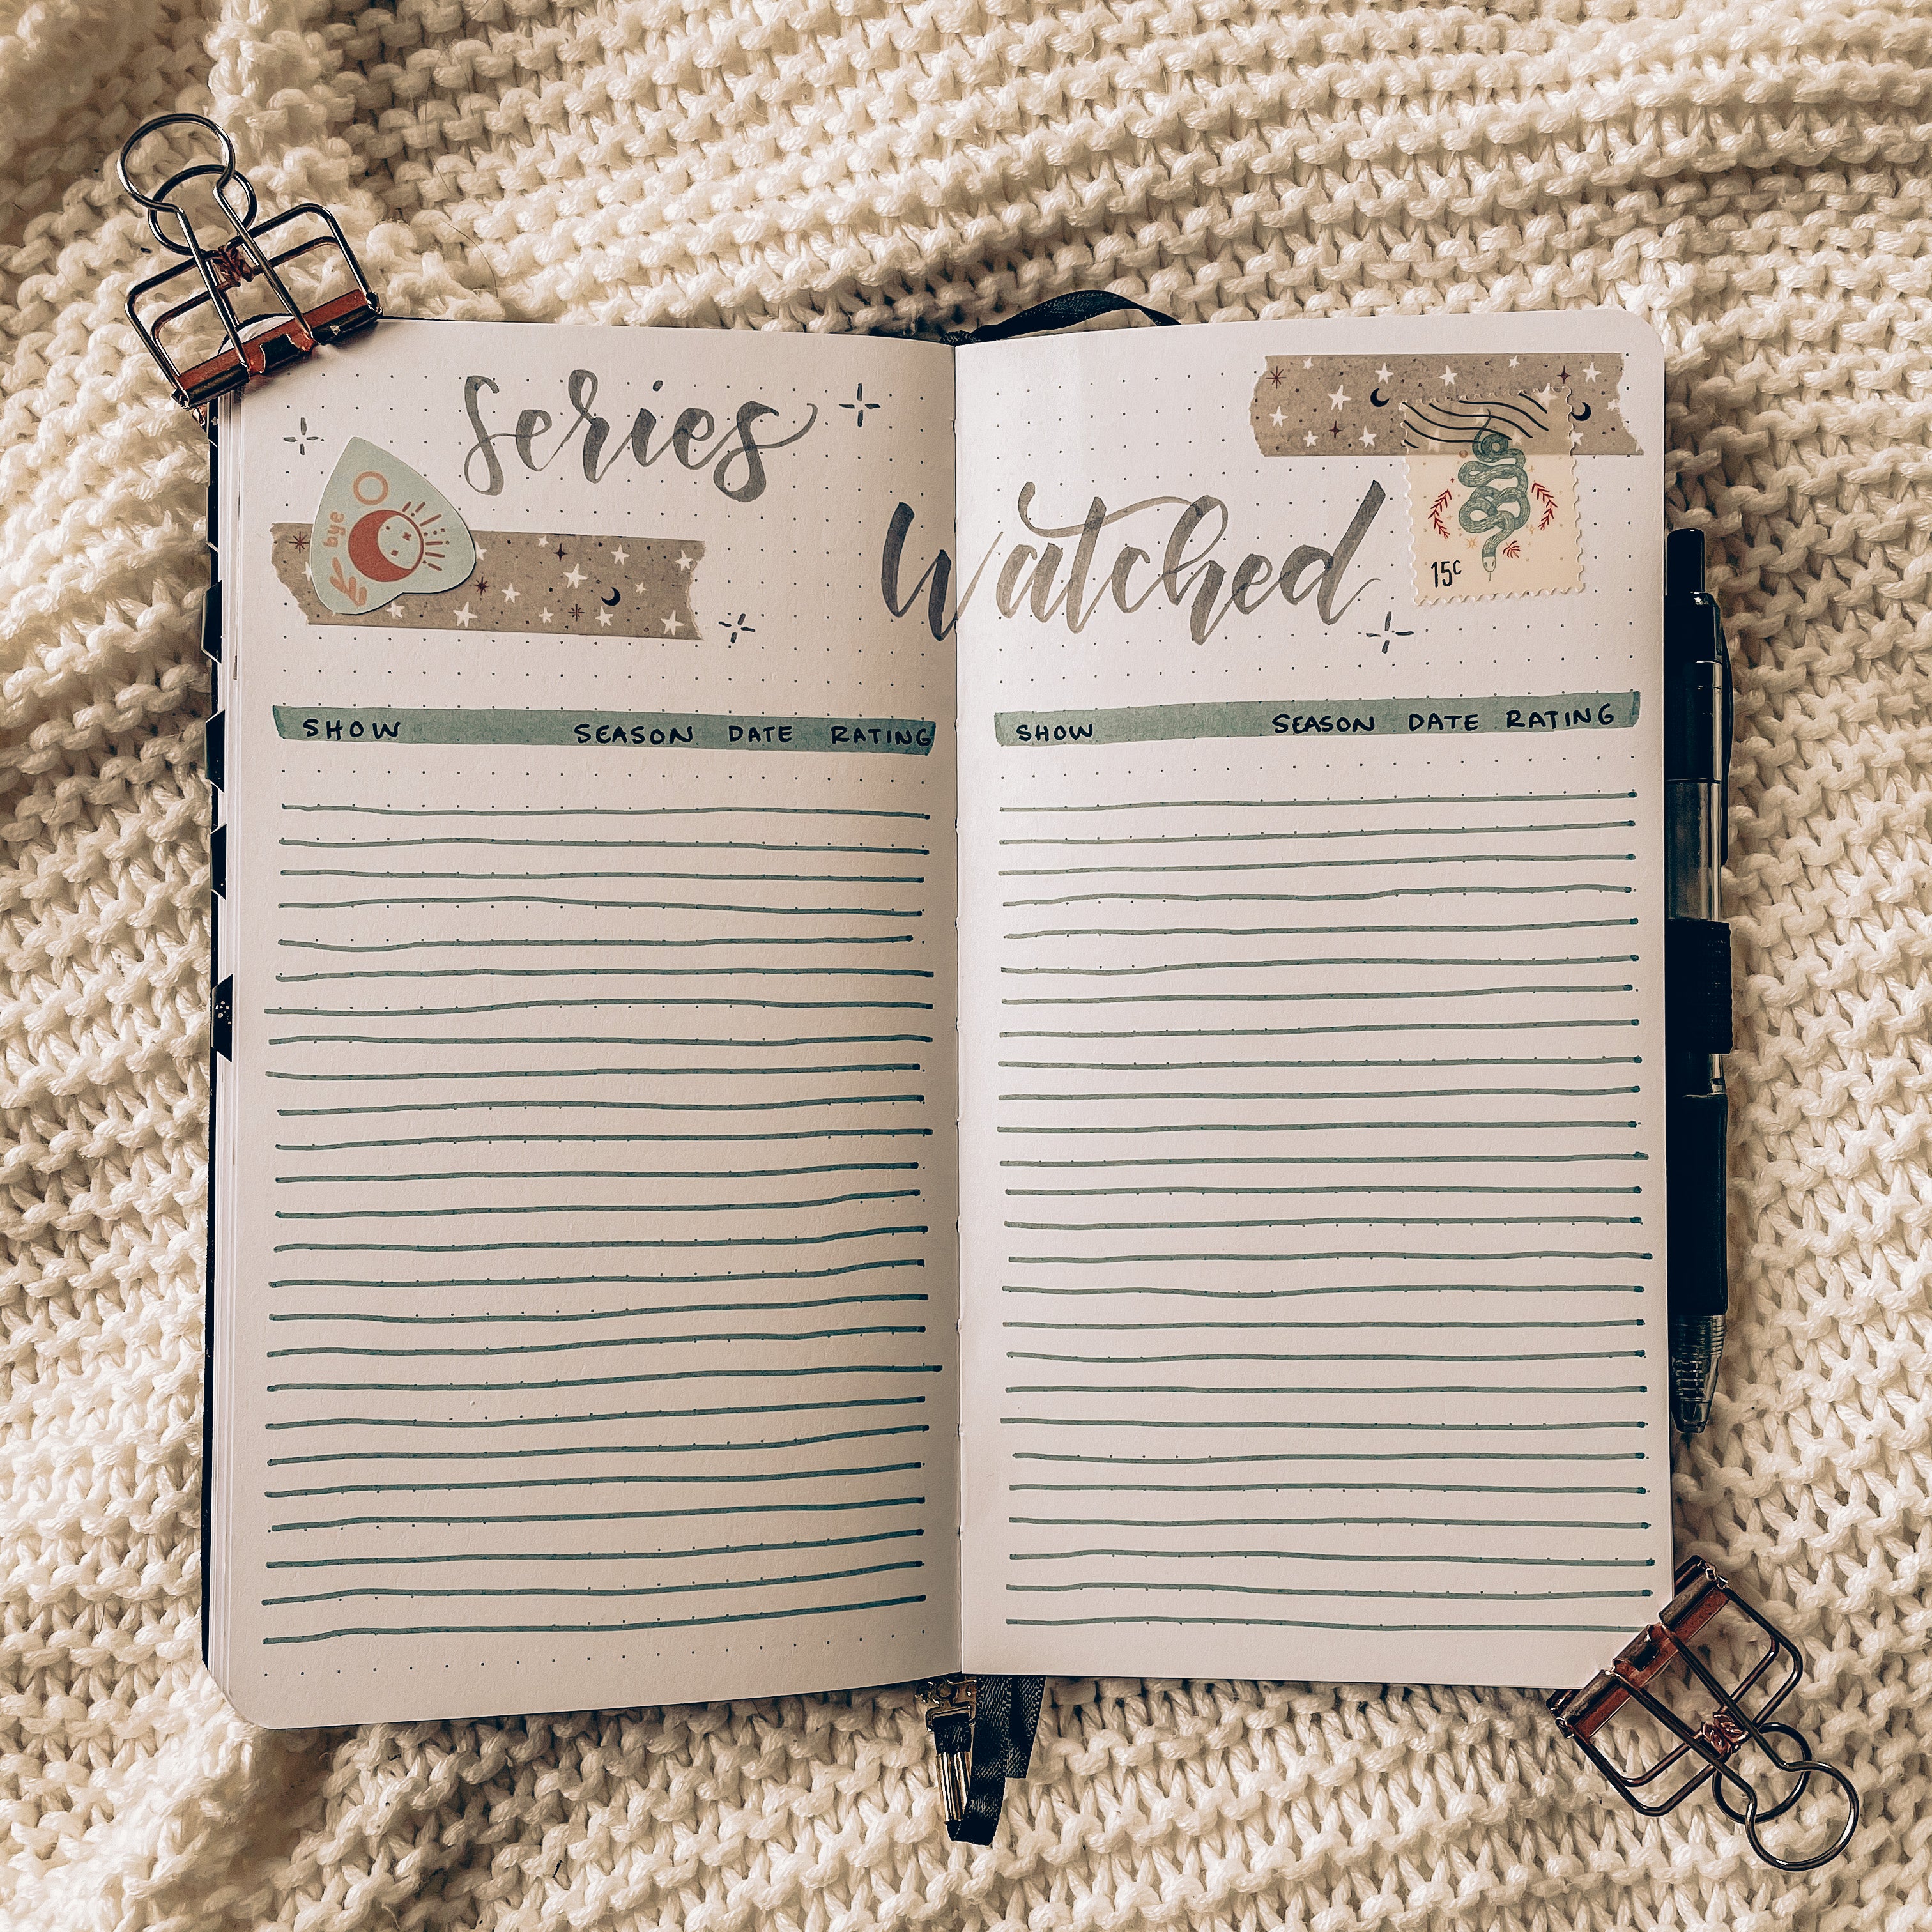 Series
Watched
bye
15c
SHOW SEASON DATE RATING
SHOW SEASON DATE RATING